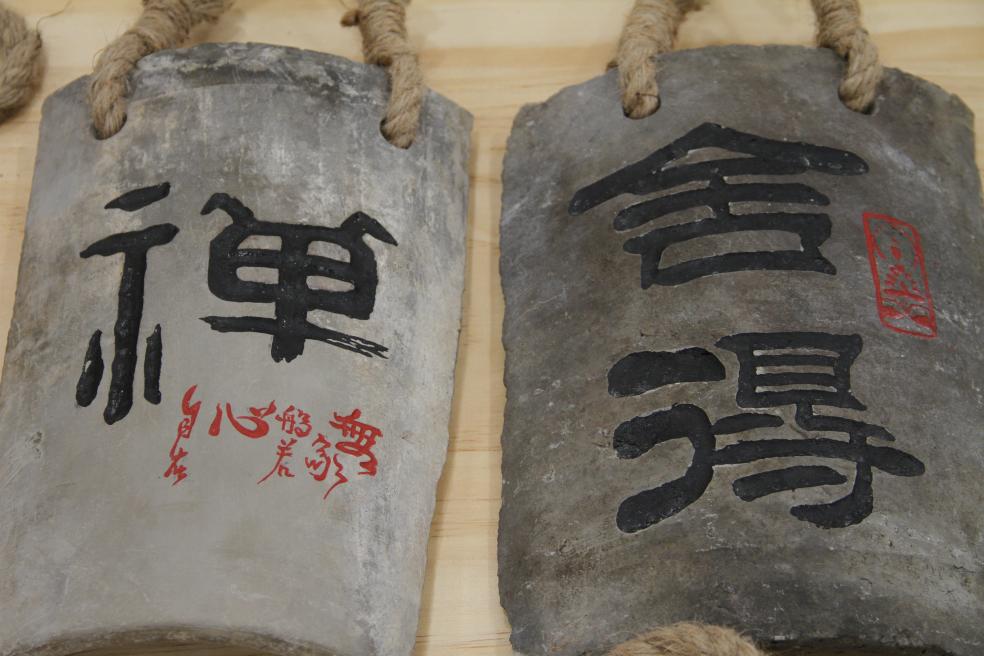 禅
無
般若
心
自在
舍
得